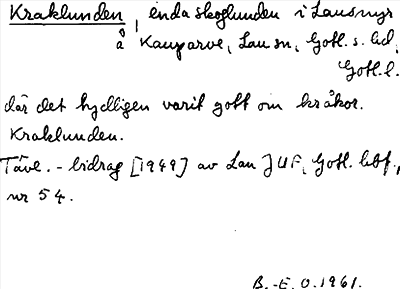 Kraklunden, enda skoglunden i Lausmyr
å Kauparve, Lau sn, Gotl. s. hd,
Gotl. l.
där det tydligen varit gott om kråkor.
Kraklunden.
Täve. - bidrag [1949] av Lau JUF, Gotl. hbf.,
nr 54.
B.-E. O. 1961.